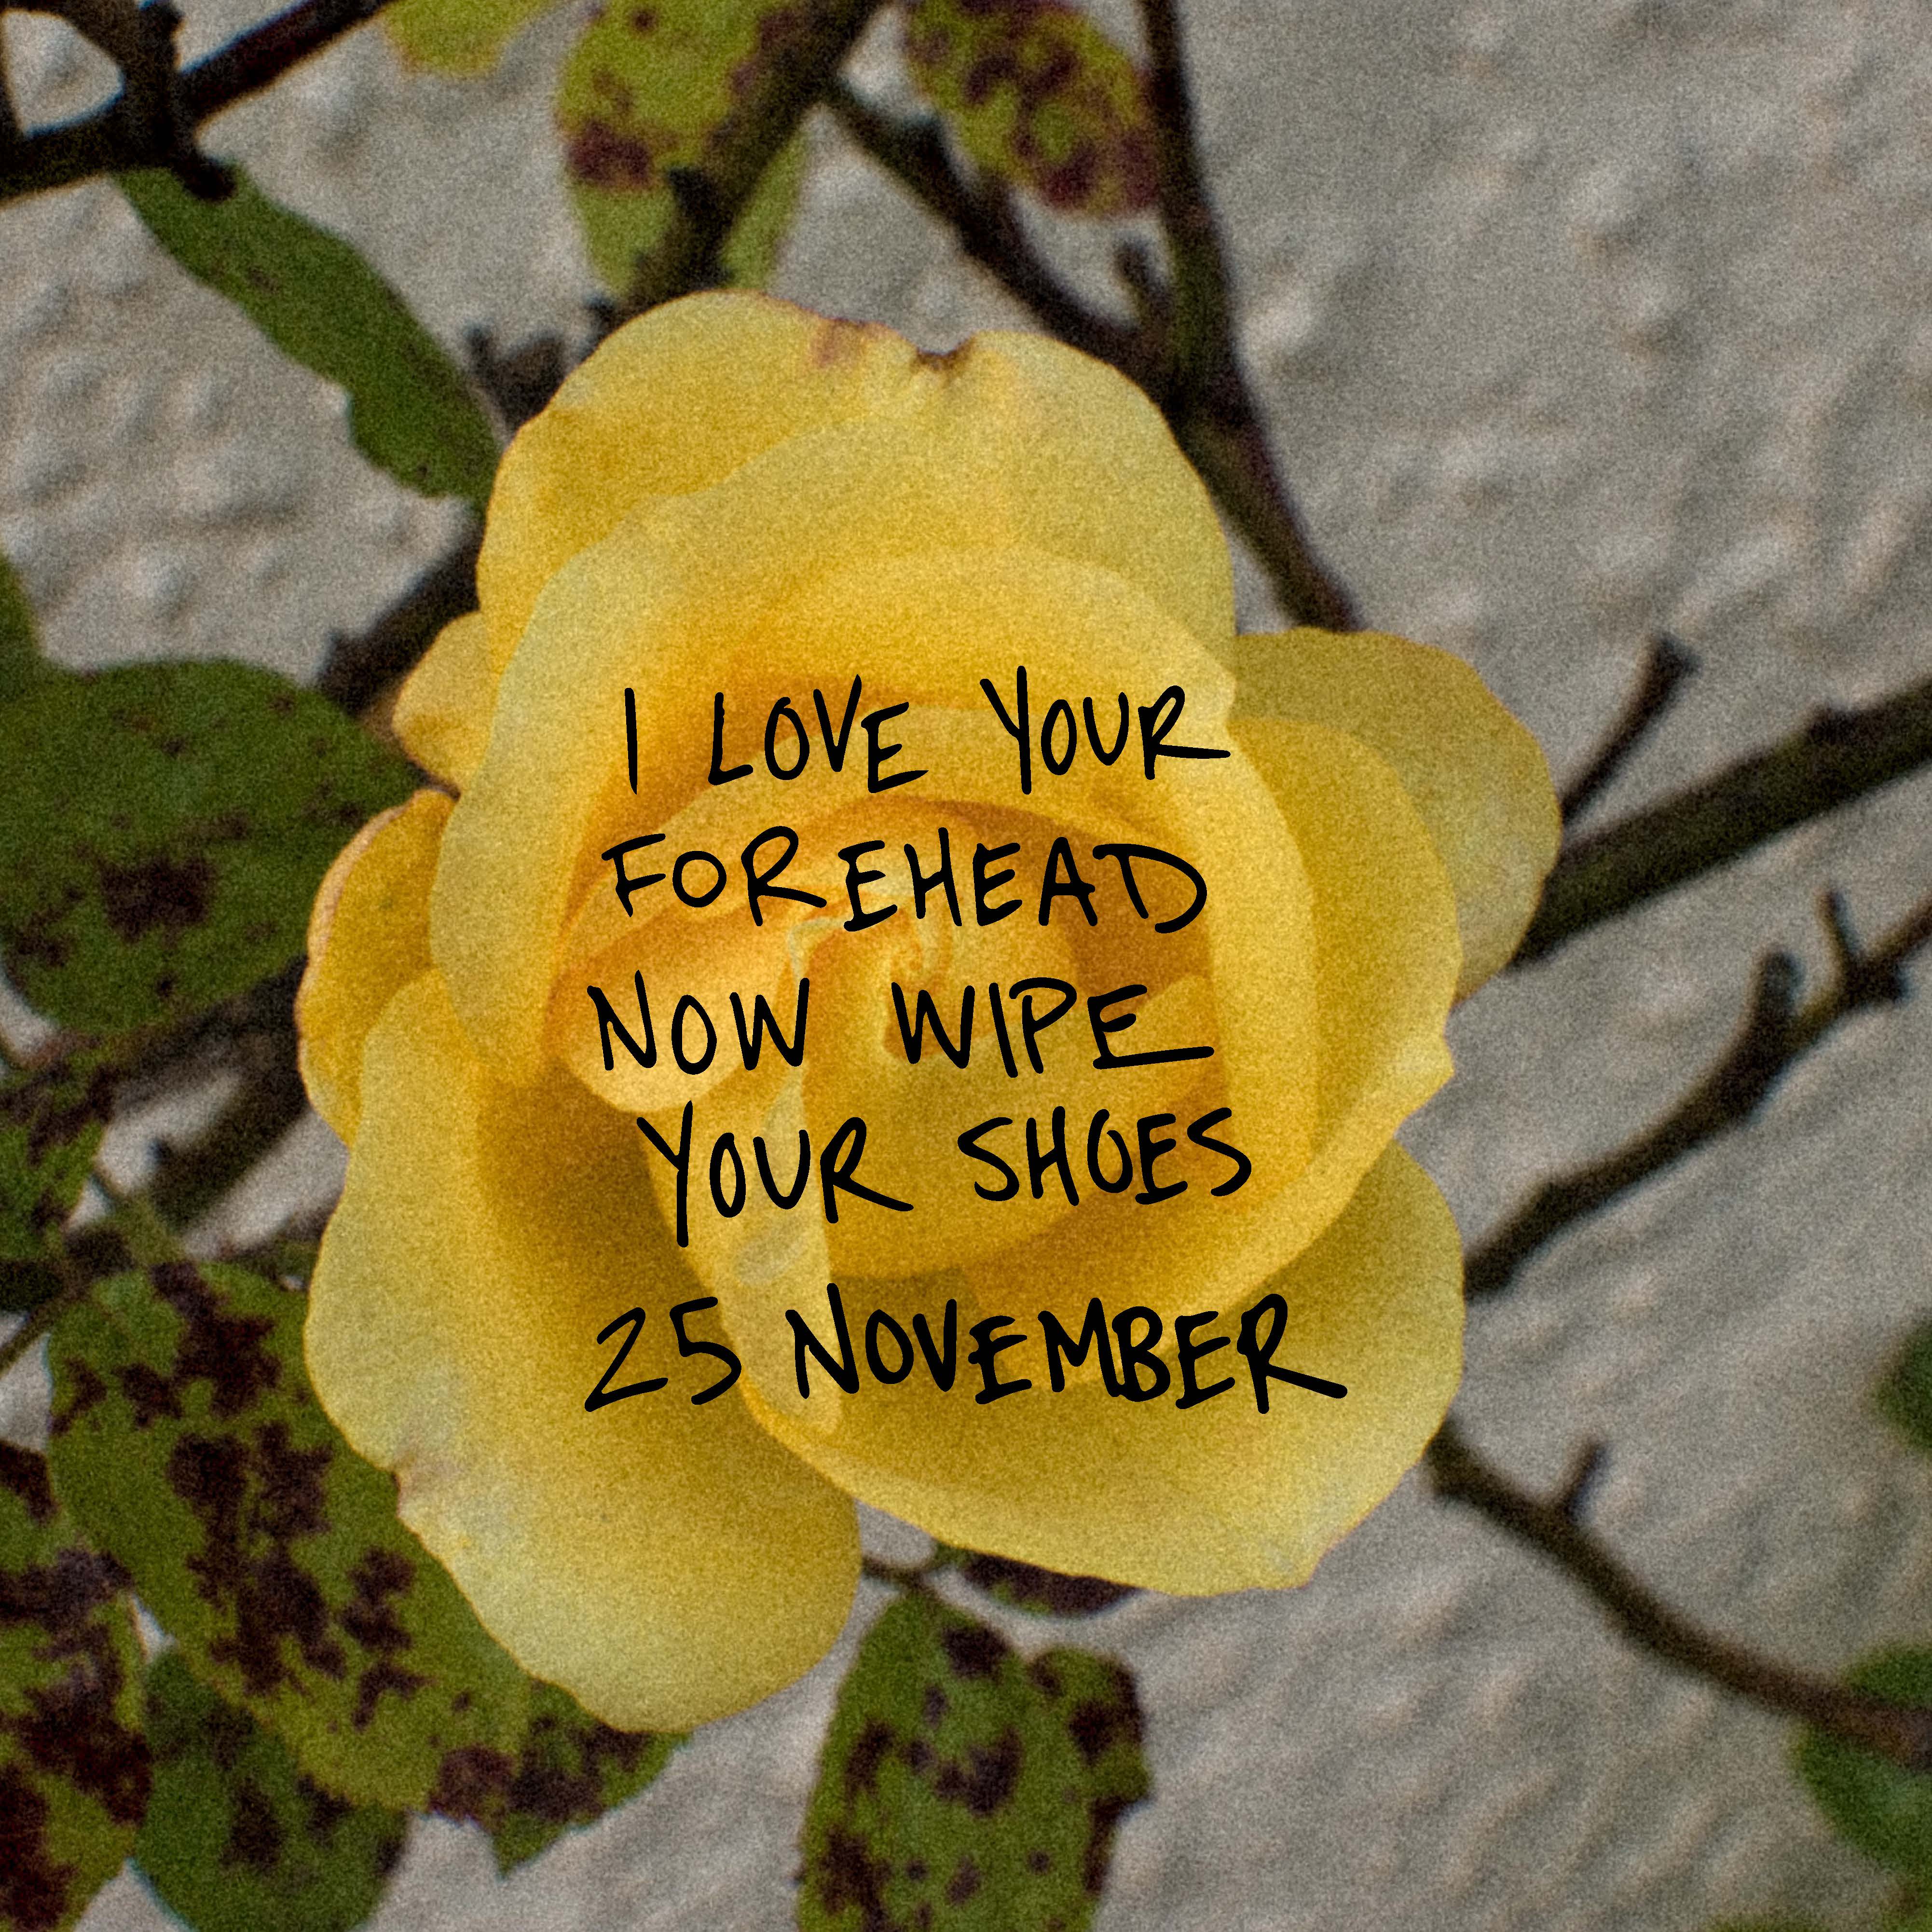 I LOVE YOUR
FOREHEAD
NOW WIPE
YOUR SHOES
25 NOVEMBER